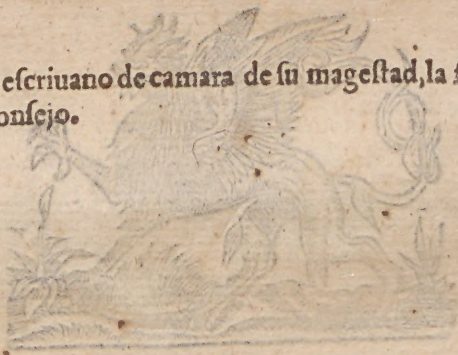 eſcriuano de camara de ſu mageſtad, la
onſejo.